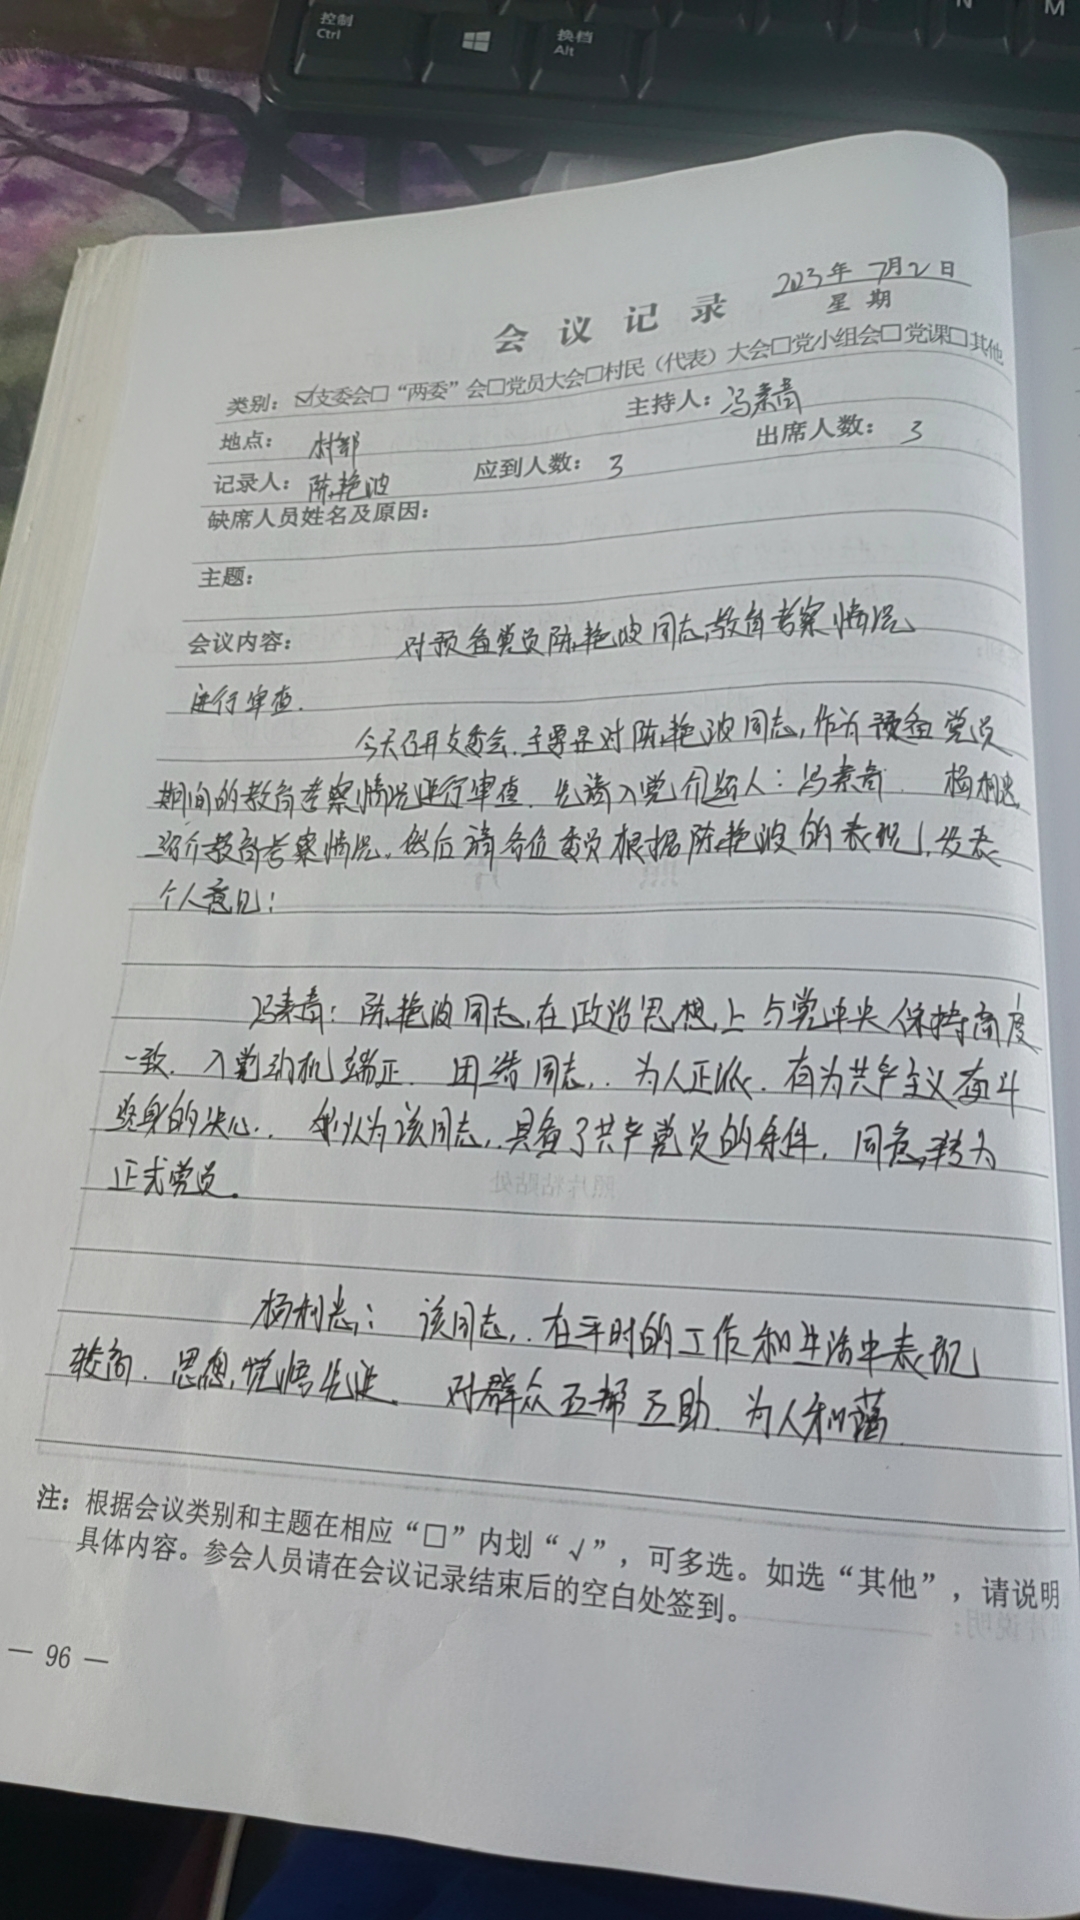 控制
Ctrl
换档
Alt
N
M
2023年 7月2日
会议记录
星期
类别：☑支委会□“两委”会□党员大会□村民（代表）大会□党小组会□党课□其他
地点： 村部 主持人：冯素青
记录人：陈艳波 应到人数：3 出席人数：3
缺席人员姓名及原因：
主题：
会议内容： 对预备党员陈艳波同志教育考察情况
进行审查.
今天召开支委会.主要是对陈艳波同志,作为预备党员
期间的教育考察情况进行审查.先请入党介绍人：冯素青. 杨利忠
介教育考察情况.然后请各位委员根据陈艳波的表现,发表
个人意见：
冯素青：陈艳波同志,在政治思想上与党中央保持高度
一致.入党动机端正.团结同志,.为人正派.有为共产主义奋斗
终身的决心..我认为该同志,.具备了共产党员的条件.同意转为
正式党员。
杨利忠：该同志,.在平时的工作和生活中表现
较高.思想,觉悟先进.对群众互帮互助.为人和蔼.
注：根据会议类别和主题在相应“□”内划“√”，可多选。如选“其他”，请说明
具体内容。参会人员请在会议记录结束后的空白处签到。
— 96 —